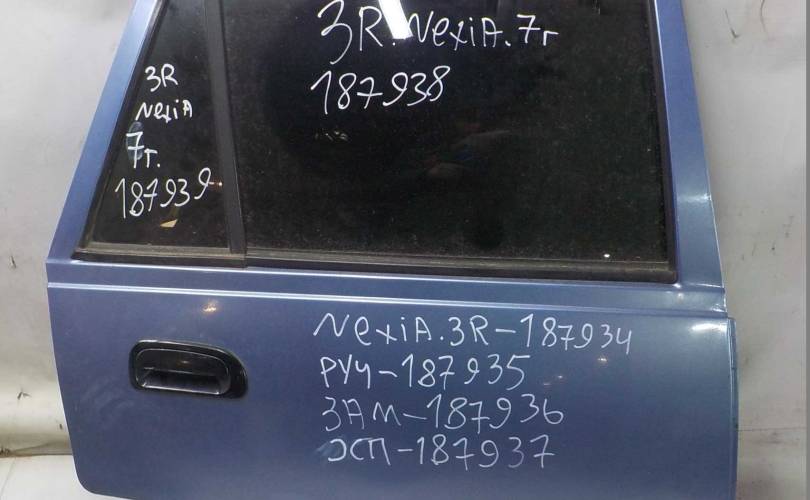 3R
NexiA
7г.
187939
3R.NexiA.7г
187938
NexiA.3R-187934
РУЧ-187935
ЗАМ-187936
ЭСП-187937